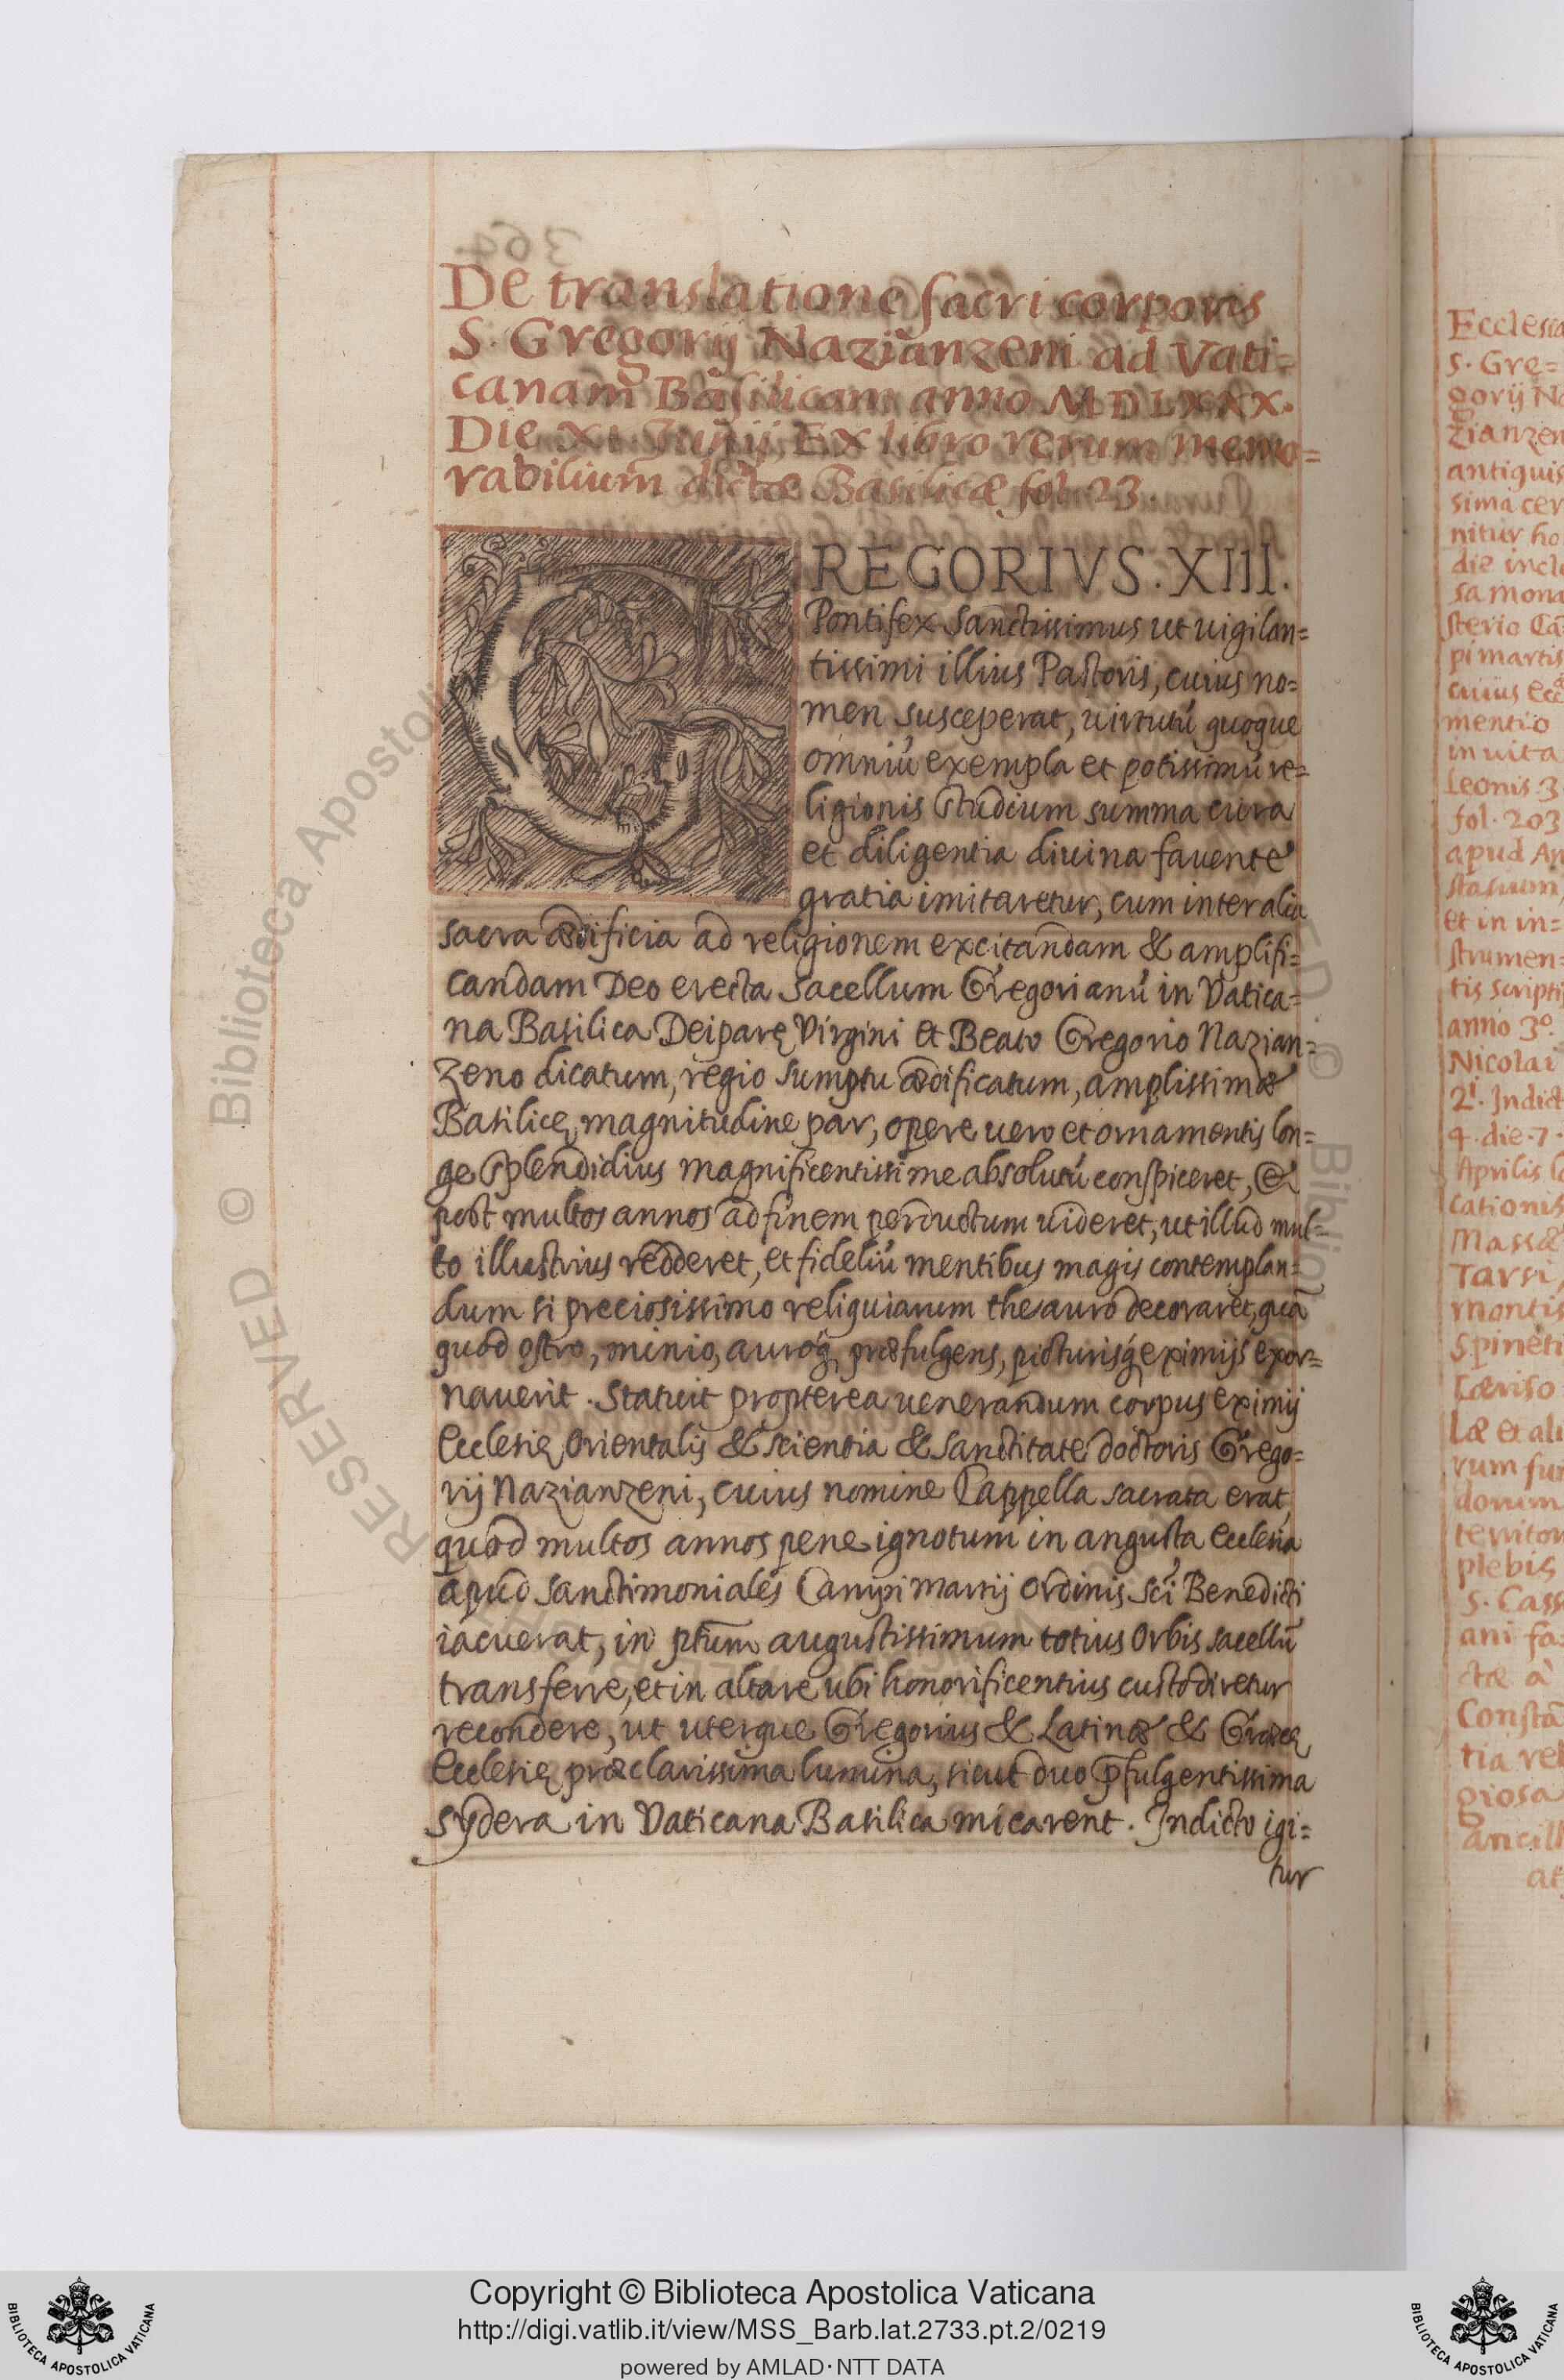 De translatione sacri corporis
S. Gregorij Nazianzeni ad Vati=
canam Basilicam anno MDLXXX.
Die XI. Junij, Ex libro rerum memo=
rabilium dictæ Basilicæ fol. 23.
GREGORIVS. XIII.
Pontifex Sanctissimus ut uigilan=
tissimi illius Pastoris, cuius no=
men susceperat, uirtutũ quoque
omniũ exempla et potissimũ re=
ligionis studium summa cura
et diligentia diuina fauente
gratia imitaretur, cum inter alia
sacra ædificia ad religionem excitandam & amplifi=
candam Deo erecta Sacellum Gregorianũ in Vatica=
na Basilica Deiparę Virgini et Beato Gregorio Nazian=
zeno dicatum, regio sumptu ædificatum, amplissimæ
Basilicę magnitudine par, opere uero et ornamentis lon=
ge splendidius magnificentissime absolutũ conspiceret, &
post multos annos ad finem perductum uideret, ut illud mul=
to illustrius redderet, et fideliũ mentibus magis contemplan=
dum si preciosissimo reliquiarum thesauro decoraret, quã
quod ostro, minio, auroq́ præfulgens, picturisq́ eximijs exor=
nauerit. Statuit propterea uenerandum corpus eximij
Ecclesię Orientalis & scientia & sanctitate doctoris Grego=
rij Nazianzeni, cuius nomine Cappella sacrata erat,
quod multos annos pene ignotum in angusta Ecclesia
apud Sanctimoniales Campi Martij Ordinis Sc̃i Benedicti
iacuerat, in pt̃um augustissimum totius Orbis sacellũ
transferre, et in altare ubi honorificentius custodiretur
recondere, ut uterque Gregorius & Latinæ & Græcę
Ecclesię præclarissima lumina, sicut duo p̃fulgentissima
sydera in Vaticana Basilica micarent. Indicto igi=
tur
Ecclesia
S. Gre=
gorij Na
zianzen
antiquis
sima cer
nitur ho
die inclu
sa mona
sterio Cã
pi martis
cuius ecc
mentio
in uita
Leonis. 3
fol. 203
apud An
stasium,
et in in=
strumen=
tis scripti
anno 3º.
Nicolai
2i. Indict
4. die. 7.
Aprilis lo
cationis
Massæ
Tarsi,
montis
Spineti
Cæriso
Læ et ali
rum fun
dorum
territor
plebis
S. Cass
ani fa=
ctæ à
Constã
tia reli
giosa
ancill
at
364
RESERVED © Biblioteca Apostolica
Copyright © Biblioteca Apostolica Vaticana
http://digi.vatlib.it/view/MSS_Barb.lat.2733.pt.2/0219
powered by AMLAD·NTT DATA
BIBLIOTECA APOSTOLICA VATICANA
BIBLIOTECA APOSTOLICA VATICANA